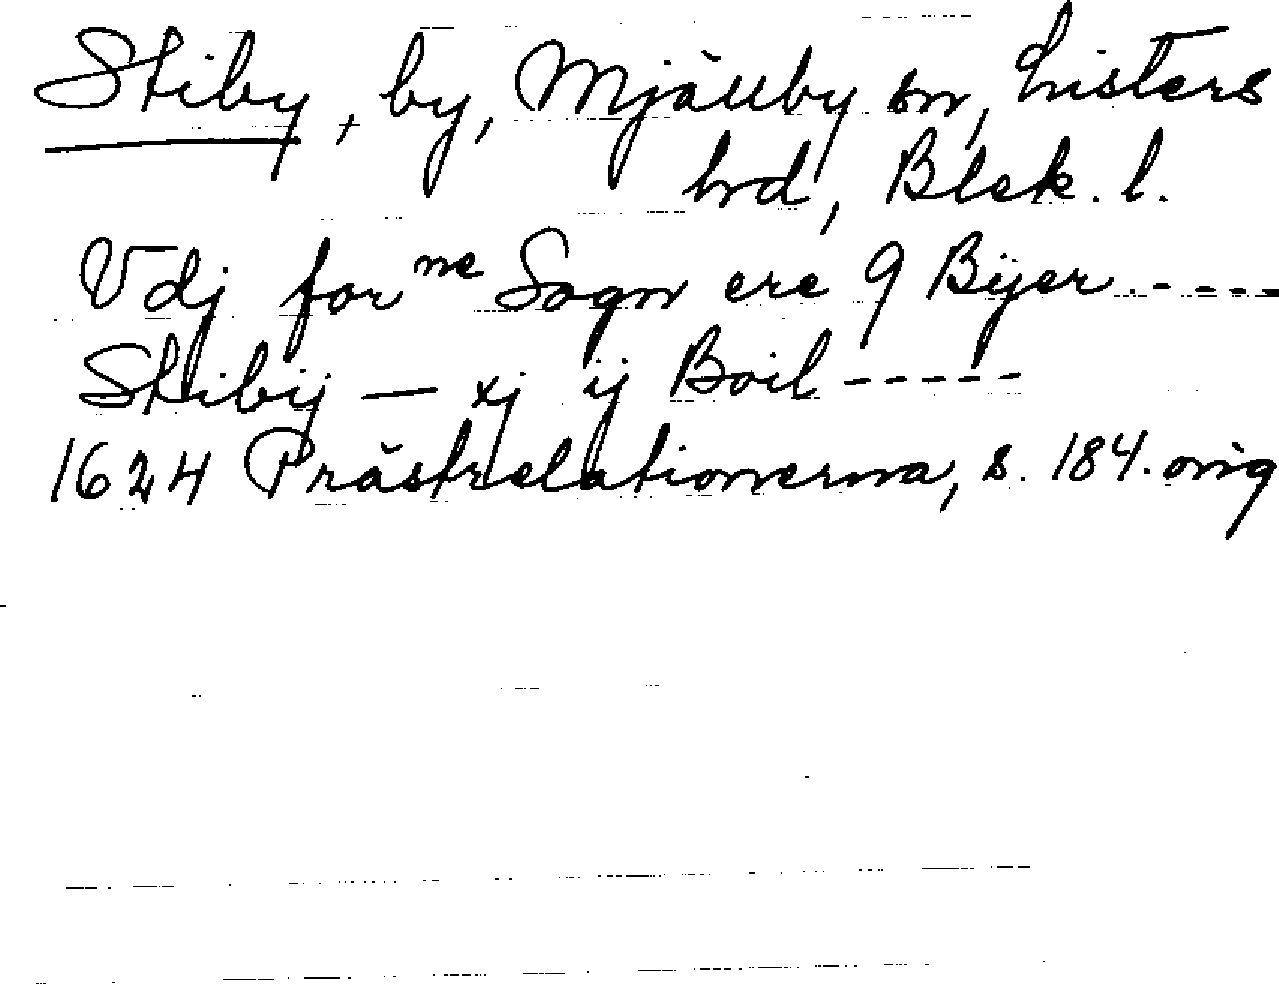 Stiby, by, Mjällby sn, Listers
hrd, Blek. l.
Vdj forne Sogn ere 9 Bÿer -----
Stibÿ — xj ij Boil -----
1624 Prästrelationerna, s. 184. orig